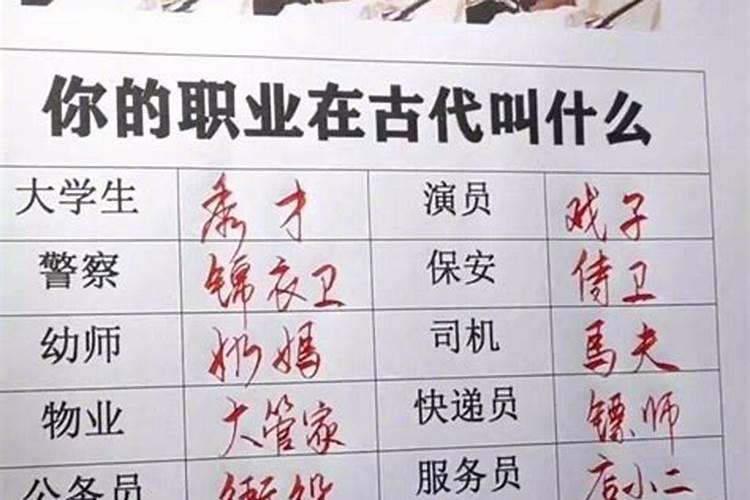 你的职业在古代叫什么
大学生 秀才 演员 戏子
警察 锦衣卫 保安 侍卫
幼师 奶媽 司机 馬夫
物业 大管家 快递员 镖师
公务员 衙役 服务员 店小二